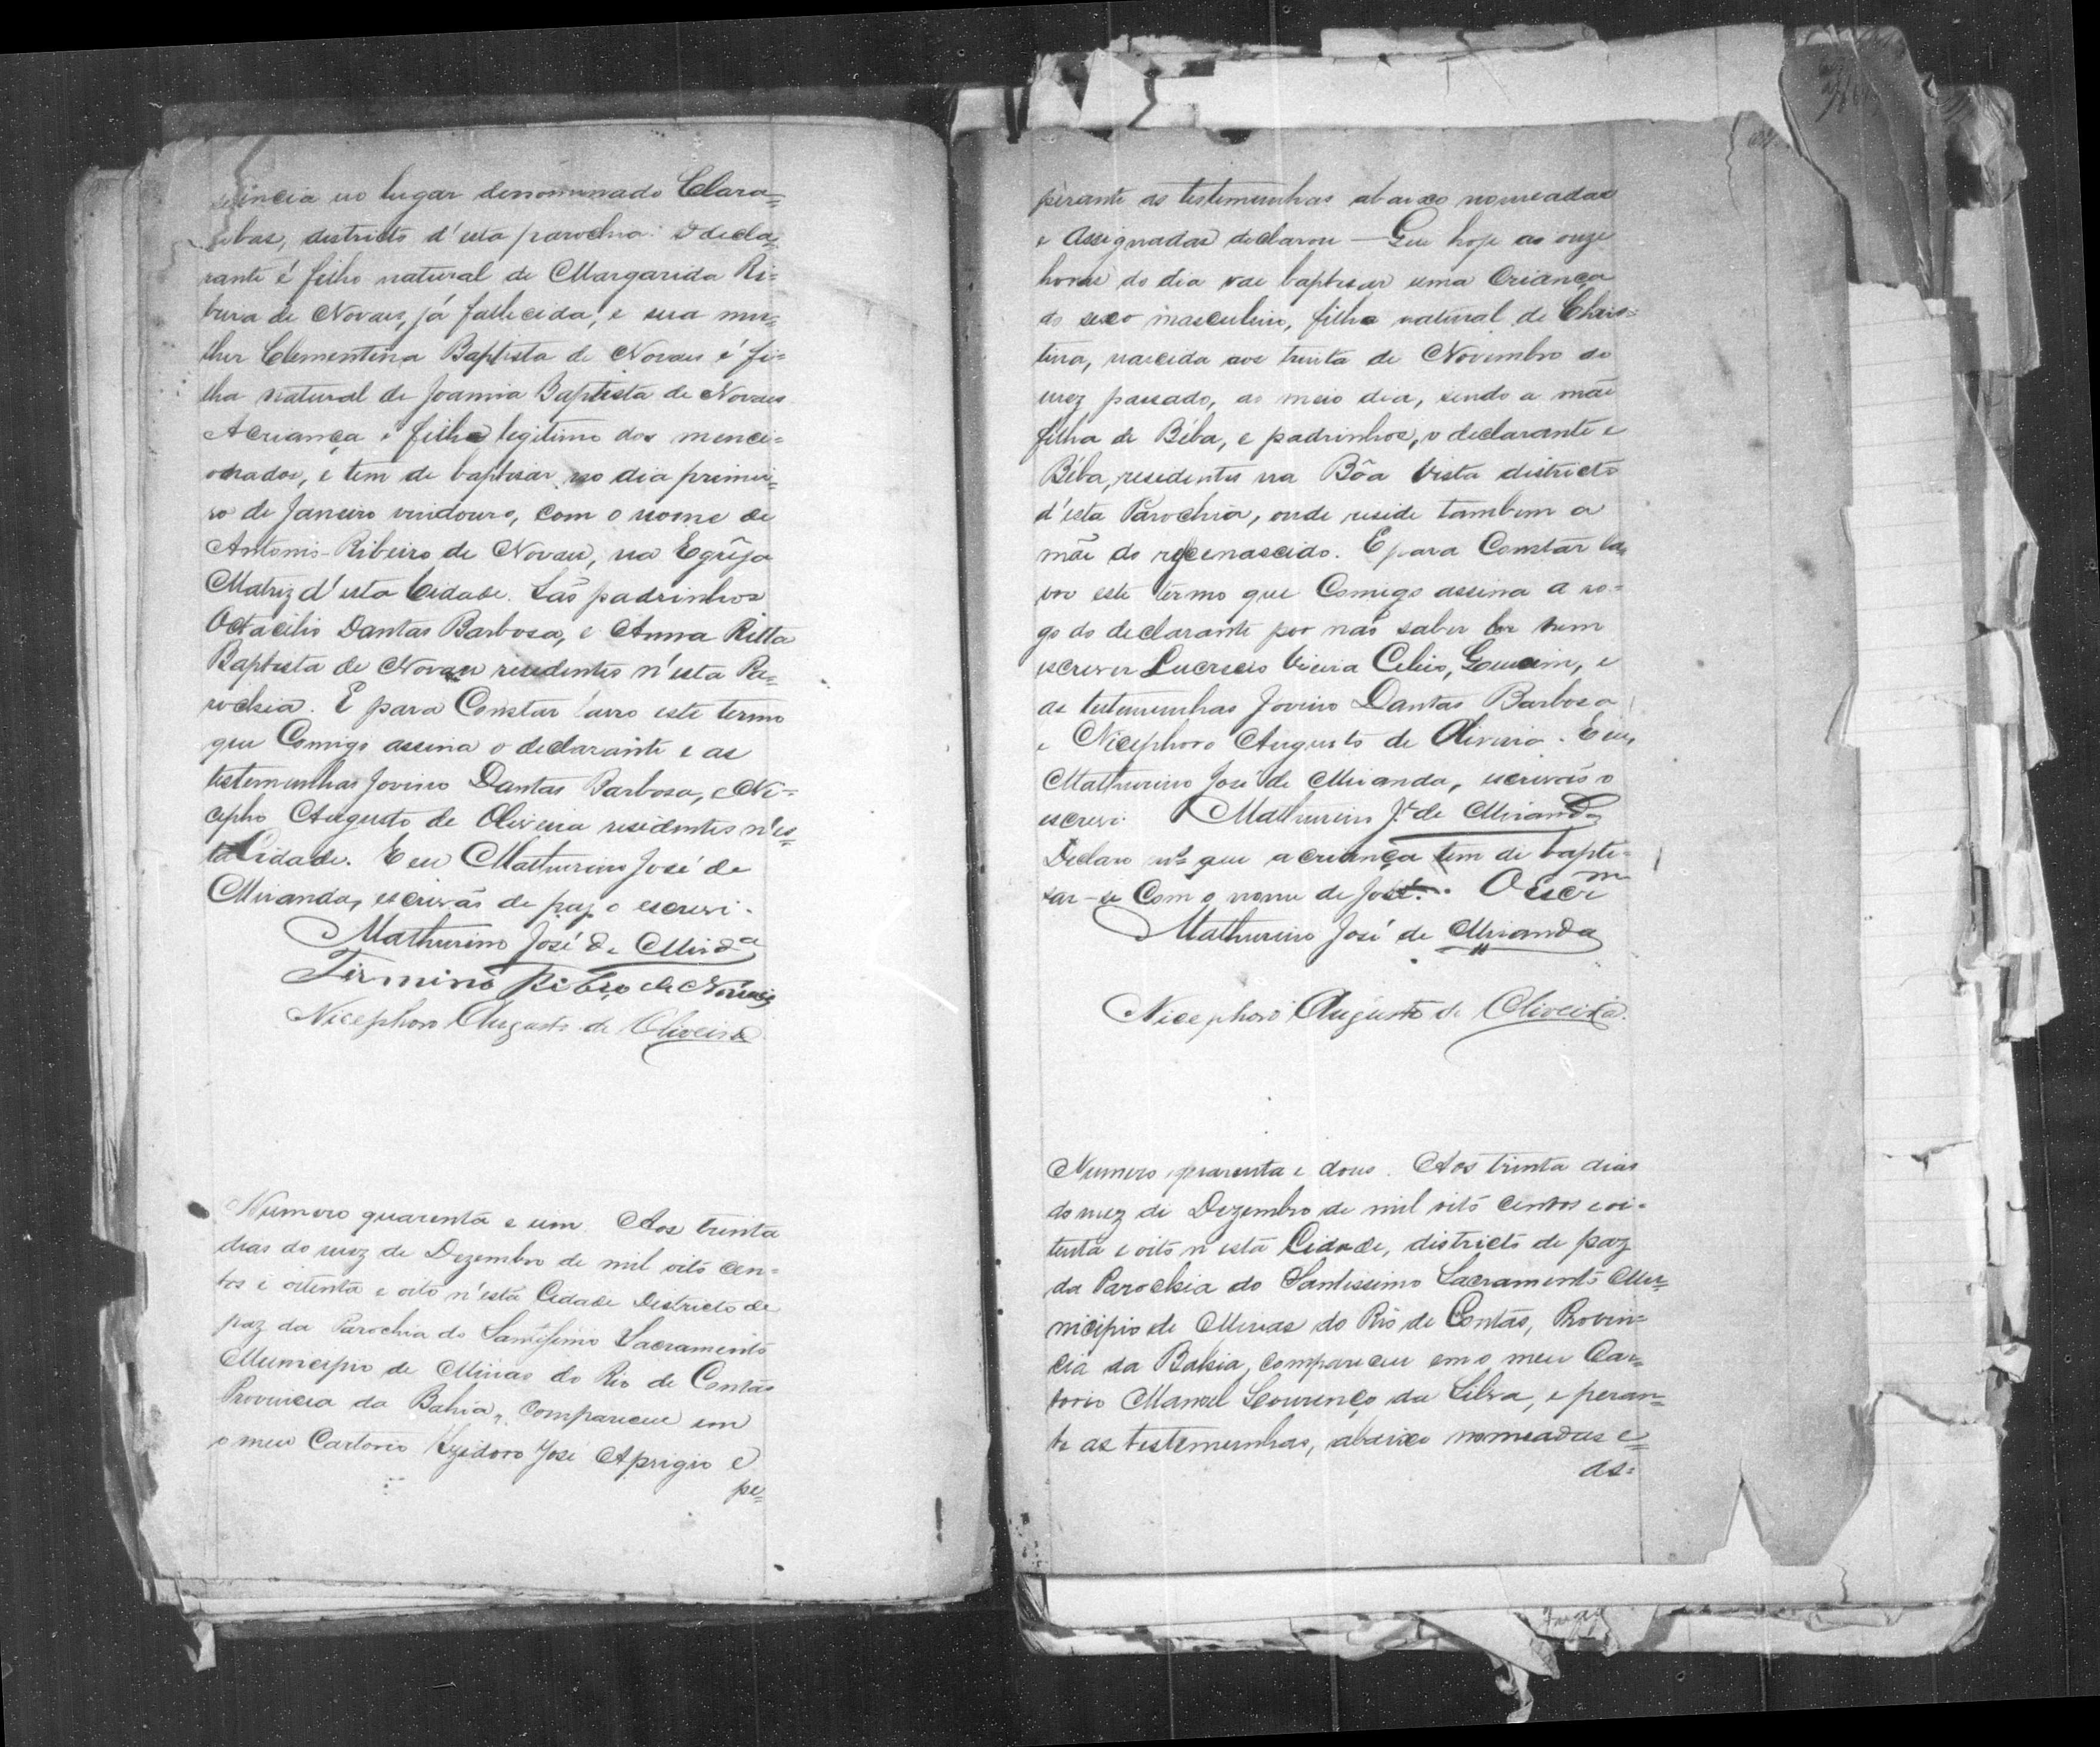 dencia no lugar denominado Clara=
ibas, districto d'esta parochia. O decla=
rante é filho natural de Margarida Ri=
beira de Novaes, já fallecida, e sua mu=
lher Clementina Baptista de Novaes é fi=
lha natural de Joanna Baptista de Novaes
A criança é filho legitimo dos menci=
onados, e tem de baptisar no dia primei=
ro de Janeiro vindouro, com o nome de
Antonio Ribeiro de Novaes, na Egreja
Matriz d'esta Cidade. São padrinhos
Octacilio Dantas Barbosa, e Anna Ritta
Baptista de Novaes residentes n'esta Pa=
rochia. E para Constar lavro este termo
que Comigo assina o declarante e as
testemunhas Jovino Dantas Barbosa, e Ni=
cepho Augusto de Oliveira residentes n'es=
ta Cidade. E eu Mathurino José de
Miranda, escrivão de paz o escrevi.
Mathurino José de Mirda
Firmino Ribro de Novais
Nicephoro Augusto de Oliveira
Numero quarenta e um. Aos trinta
dias do mez de Dezembro de mil oito cen=
tos e oitenta e oito n'esta Cidade Districto de
paz da Parochia do Santissimo Sacramento
Municipio de Minas do Rio de Contas
Provincia da Bahia, compareceu em
o meu Cartorio Izidoro José Aprigio e
pe=
perante as testemunhas abaixo nomeadas
e Assignadas declarou — Que hoje as onze
horas do dia vae baptisar uma Criança
do sexo masculino, filha natural de Chris=
tina, nascida aos trinta de Novembro do
mez passado, ao meio dia, sendo a mãe
filha de Béba, e padrinhos, o declarante e
Béba, residentes na Bôa Vista districto
d'esta Parochia, onde reside tambem a
mãe do recenascido. E para Constar la=
vro este termo que Comigo assina a ro=
go do declarante por não saber ler nem
escrever Lucrecio Vieira Celio, e
as testemunhas Jovino Dantas Barbosa
e Nicephoro Augusto de Oliveira. E eu,
Mathurino José de Miranda, escrivão o
escrevi. Mathurino Je. de Miranda
Declaro que a criança tem de bapti=
sar-se Com o nome de José. O Escrm
Mathurino José de Miranda
Nicephoro Augusto de Oliveira.
Numero quarenta e dous. Aos trinta dias
do mez de Dezembro de mil oito centos e oi=
tenta e oito n'esta Cidade, districto de paz
da Parochia do Santissimo Sacramento Mu=
nicipio de Minas do Rio de Contas, Provin=
cia da Bahia, compareceu em o meu Car=
torio Manoel Lourenço da Silva, e peran=
te as testemunhas, abaixo nomeadas e=
as=